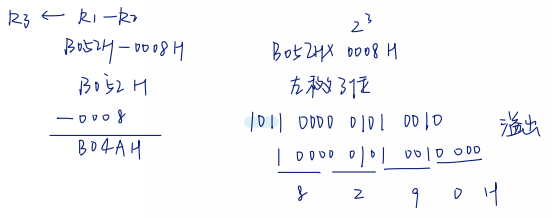 R3 ← R1-R2
B052H-0008H
B052H
-0008
B04AH
2³
B052H× 0008H
左移3位
1011 0000 0101 0010 溢出
1 0000 0101 0010 000
8 2 9 0 H